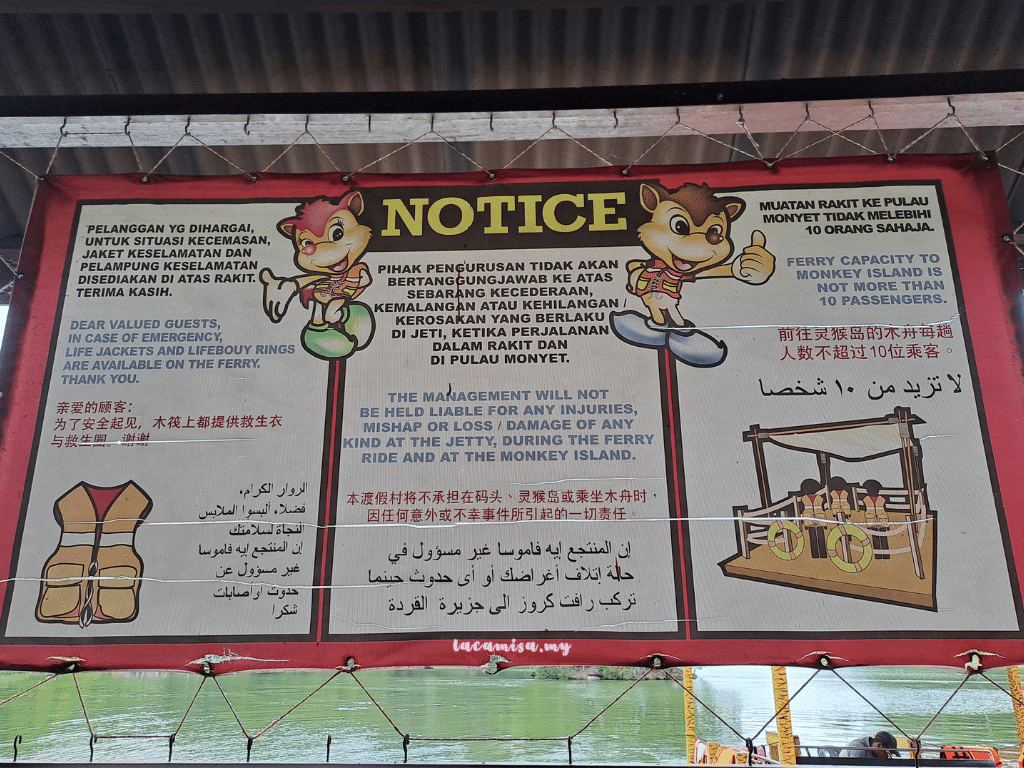 NOTICE
PELANGGAN YG DIHARGAI,
UNTUK SITUASI KECEMASAN,
JAKET KESELAMATAN DAN
PELAMPUNG KESELAMATAN
DISEDIAKAN DI ATAS RAKIT.
TERIMA KASIH.
DEAR VALUED GUESTS,
IN CASE OF EMERGENCY,
LIFE JACKETS AND LIFEBOUY RINGS
ARE AVAILABLE ON THE FERRY.
THANK YOU.
亲爱的顾客：
为了安全起见，木筏上都提供救生衣
与救生圈。谢谢
الزوار الكرام،
فضلاء ألبسوا الملابس
النجاة لسلامتك
إن المنتجع إيه فاموسا
غير مسؤول عن
حدوث أو أصابات
شكرا
PIHAK PENGURUSAN TIDAK AKAN
BERTANGGUNGJAWAB KE ATAS
SEBARANG KECEDERAAN,
KEMALANGAN ATAU KEHILANGAN /
KEROSAKAN YANG BERLAKU
DI JETI, KETIKA PERJALANAN
DALAM RAKIT DAN
DI PULAU MONYET.
THE MANAGEMENT WILL NOT
BE HELD LIABLE FOR ANY INJURIES,
MISHAP OR LOSS / DAMAGE OF ANY
KIND AT THE JETTY, DURING THE FERRY
RIDE AND AT THE MONKEY ISLAND.
本渡假村将不承担在码头、灵猴岛或乘坐木舟时，
因任何意外或不幸事件所引起的一切责任。
إن المنتجع إيه فاموسا غير مسؤول في
حالة إتلاف أغراضك أو أى حدوث حينما
تركب رافت كروز الى جزيرة القردة
MUATAN RAKIT KE PULAU
MONYET TIDAK MELEBIHI
10 ORANG SAHAJA.
FERRY CAPACITY TO
MONKEY ISLAND IS
NOT MORE THAN
10 PASSENGERS.
前往灵猴岛的木舟每趟
人数不超过10位乘客。
لا تزيد من ١٠ شخصا
lacamisa.my